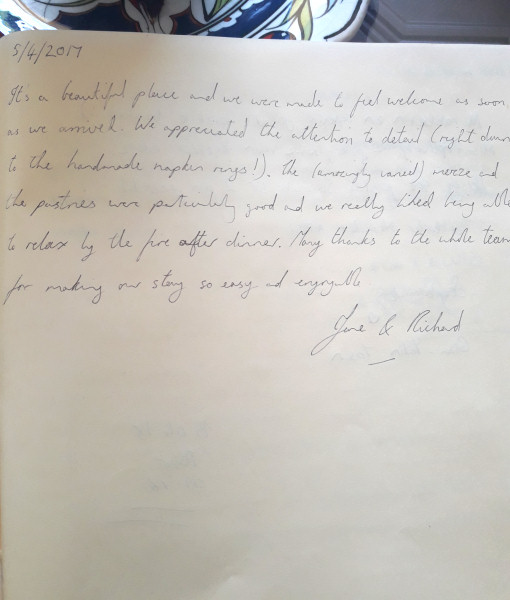 5/4/2017
It's a beautiful place and we were made to feel welcome as soon
as we arrived. We appreciated the attention to detail (right down
to the handmade napkin rings!). The (amazingly varied) mezze and
the pastries were particularly good and we really liked being able
to relax by the fire after dinner. Many thanks to the whole team
for making our stay so easy and enjoyable
Jane & Richard